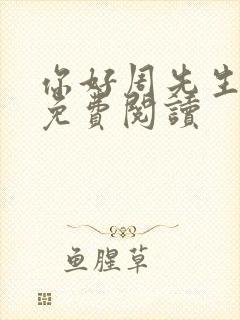 你好周先生
免費閱讀
鱼腥草